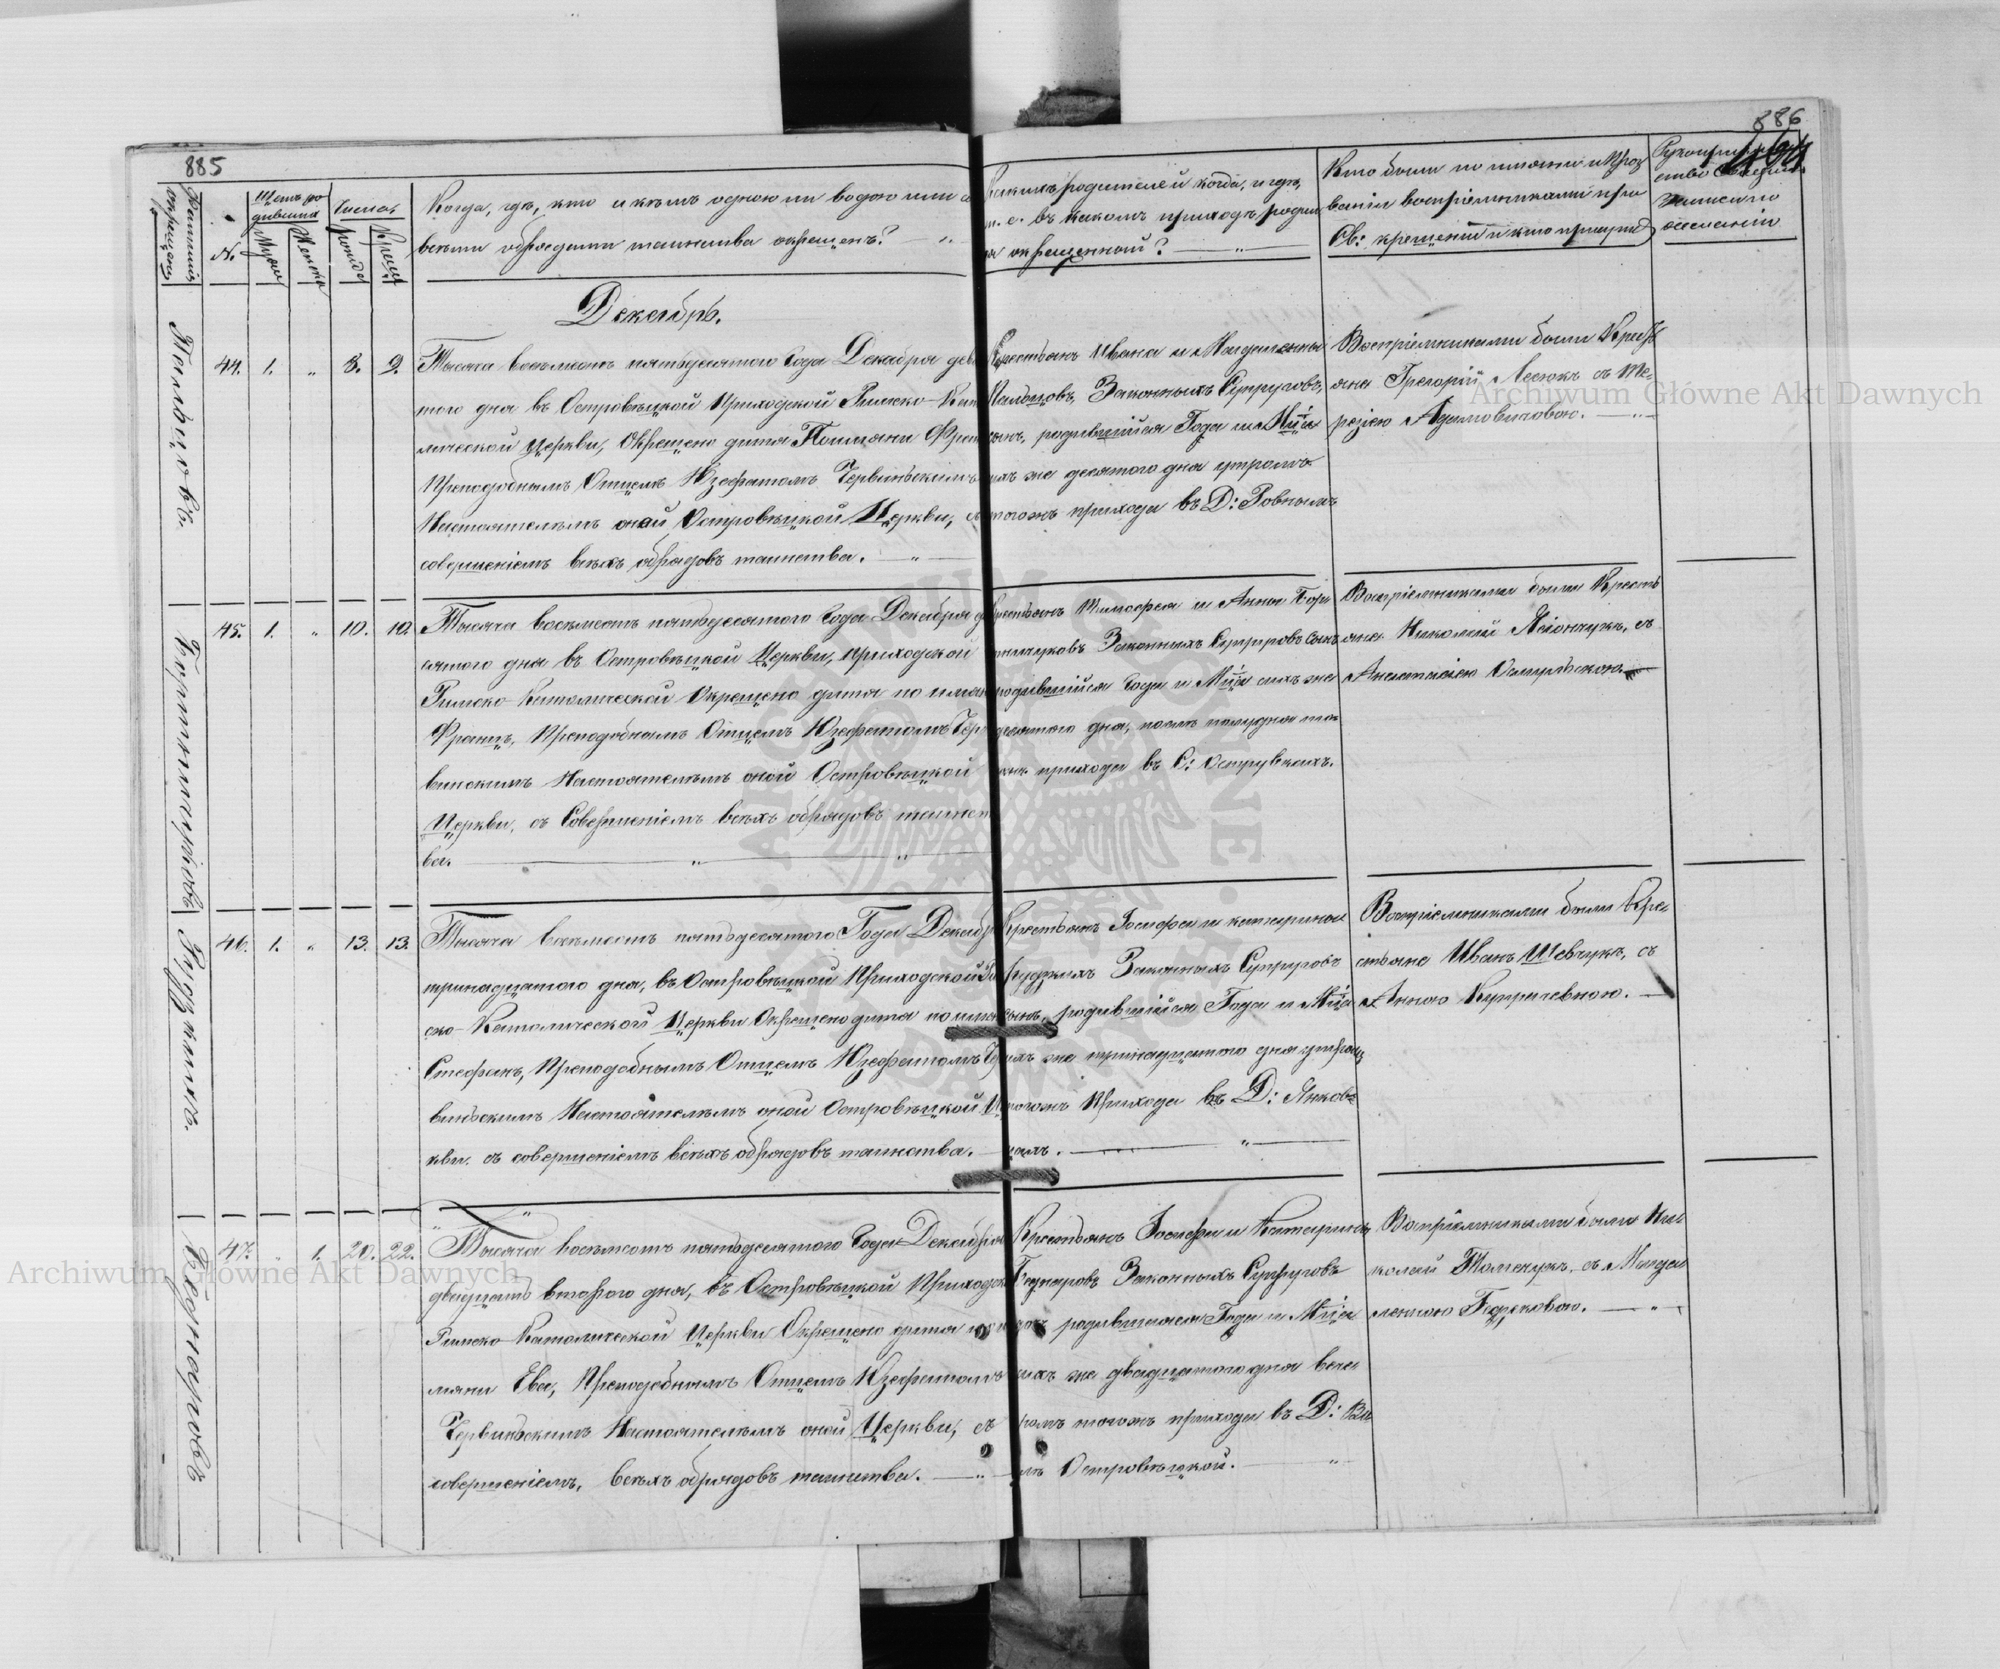 885
886
Фамилія окрещен.
№.
Щетъ родившихся
Мужеска
Женска
Число
рожденія
Крещенія
Когда, гдѣ, кто и кѣмъ одною ли водою или со
всѣми обрядами таинства окрещенъ?
какихъ родителей когда, и гдѣ,
т. е. въ какомъ приходѣ родил
ся окрещенной?
Кто были по имени и Проз
ванію воспріемниками при
Св: крещеніи и кто присутст
записи по
желанію
Декабрь.
Пальцовъ.
44. 1. „ 8. 9.
Тысяча восемьсотъ пятьдесятого Года Декабря девя
того дня въ Островѣцкой Приходской Римско-Като
лической Церкви, Окрещено дитя По имяни Францъ
Преподобнымъ Отцемъ Юзефатомъ Червинскимъ
Настоятелемъ оной Островѣцкой Церкви, съ
совершеніемъ всѣхъ обрядовъ таинства.
Крестьянъ Ивана и Магдалены
Пальцовъ, Законныхъ Супруговъ,
сынъ, родившійся Года и Мца
ихъ же десятого дня утромъ
тогожъ прихода въ Д: Ровныхъ
Воспріемниками были Кресть
яне Грегорій Лесюкъ съ Те-
резіею Адамовичовою.
45. 1. „ 10. 10.
Тысяча восемьсотъ пятьдесятого Года Декабря де
сятого дня въ Островѣцкой Церкви, приходской
Римско Католической Окрещено дитя по имяни
Францъ, Преподобнымъ Отцемъ Юзефатомъ Чер
винскимъ Настоятелемъ оной Островѣцкой
Церкви, съ Совершеніемъ всѣхъ обрядовъ таинст
ва.
Крестьянъ Тимофея и Анны
Законныхъ Супруговъ сынъ
родившійся Года и Мца ихъ же
десятого дня, послѣ полудня то
гожъ прихода въ С: Острувкахъ.
Воспріемниками были Кресть
яне Николай съ
Анастасіею
Рудзкихъ.
46. 1. „ 13. 13.
Тысяча восемьсотъ пятьдесятого Года Декабря
тринадцатого дня, въ Островѣцкой Приходской Рим
ско-Католической Церкви Окрещено дитя по имяни
Стефанъ, Преподобнымъ Отцемъ Юзефатомъ Чер
винскимъ Настоятелемъ оной Островѣцкой Цер
кви. съ совершеніемъ всѣхъ обрядовъ таинства.
Крестьянъ Іосифа и Катарины
Рудзкихъ Законныхъ Супруговъ
сынъ, родившійся Года и Мца
ихъ же тринадцатого дня утромъ
тогожъ Прихода въ Д: Янков
цахъ.
Воспріемниками были Кре-
стьяне Иванъ Шевчукъ, съ
Анною
Беднаровъ
47. „ 1. 20. 22.
Тысяча восемьсотъ пятьдесятого Года Декабря
двадцать второго дня, въ Островѣцкой Приходской
Римско-Католической Церкви Окрещено дитя по и
мяни Ева, Преподобнымъ Отцемъ Юзефатомъ
Червинскимъ Настоятелемъ оной Церкви, съ
совершеніемъ, всѣхъ обрядовъ таинства.
Крестьянъ Іосифа и Катарины
Беднаровъ Законныхъ Супруговъ
дочь родившаяся Года и Мца
ихъ же двадцатого дня вече
ромъ тогожъ прихода въ Д: Во
лѣ Островѣцкой.
Воспріемниками были Ни-
колай Томчукъ, съ Магда
леною
Archiwum Główne Akt Dawnych
Archiwum Główne Akt Dawnych